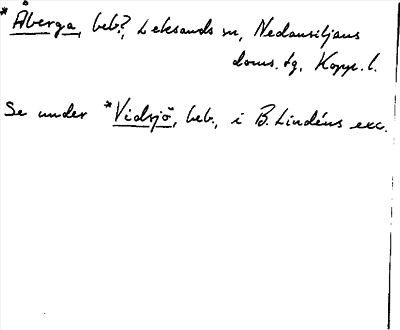 * Åberga, beb.?, Leksands sn, Nedansiljans
doms. tg, Kopp. l.
Se under *Vidsjö, beb., i B. Lindéns exc.